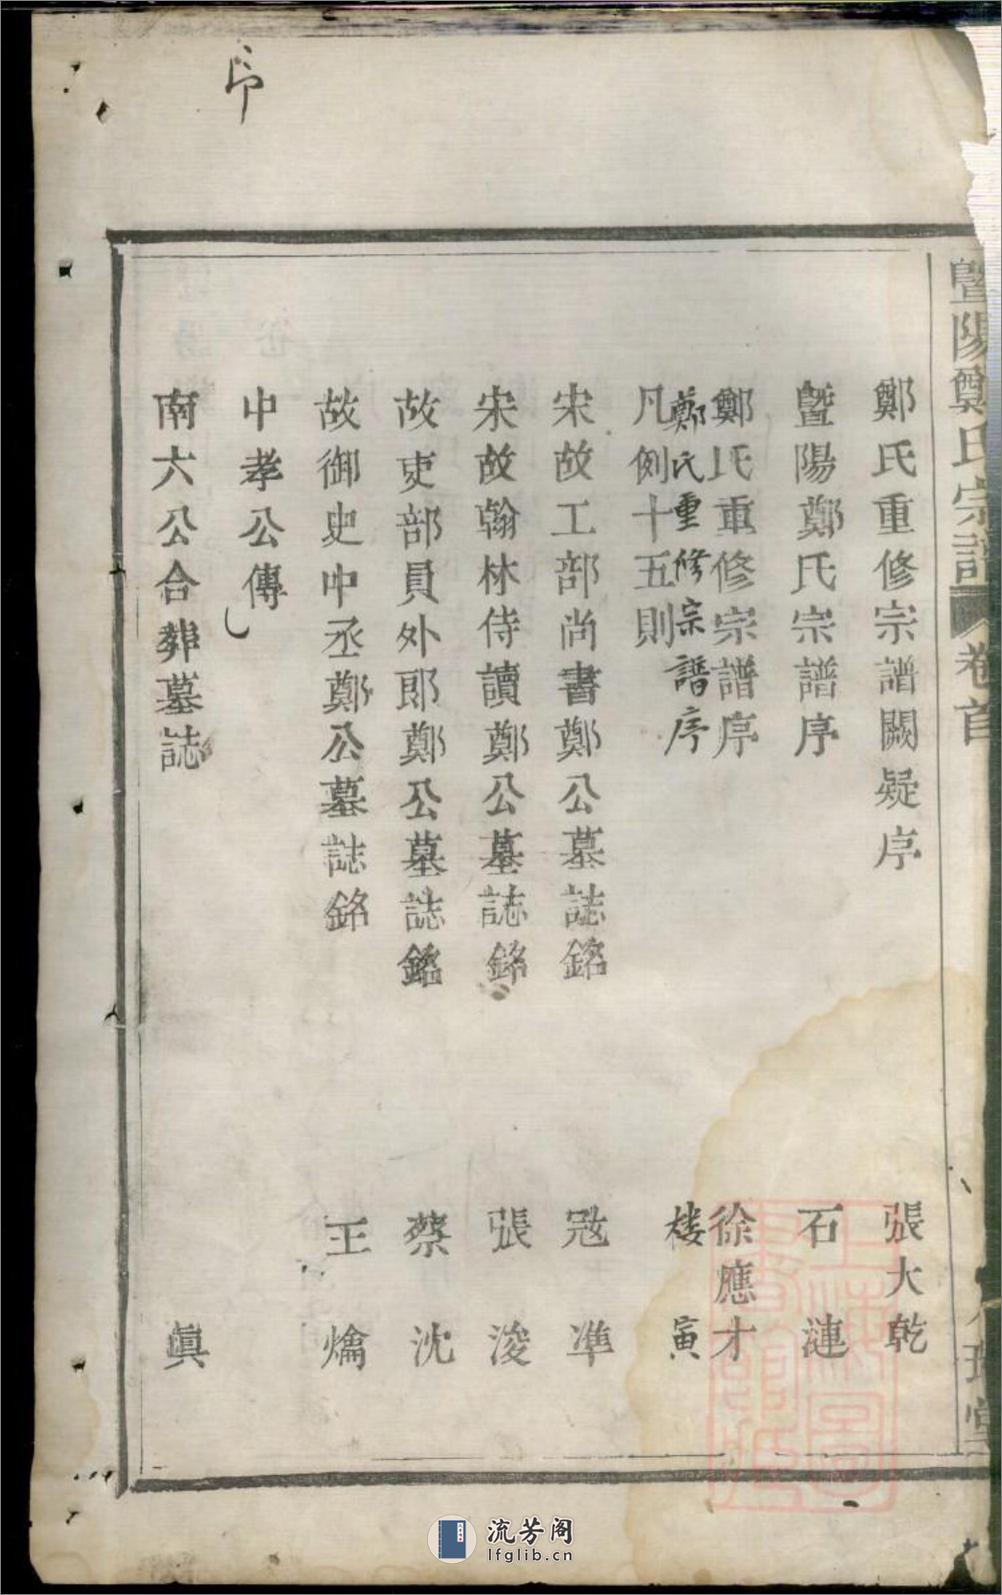 暨陽鄭氏宗譜 卷首
鄭氏重修宗譜闕疑序 張大乾
暨陽鄭氏宗譜序 石漣
鄭氏重修宗譜序 徐應才
鄭氏重修宗譜序 楼寅
凡例十五則
宋故工部尚書鄭公墓誌銘 寇準
宋故翰林侍讀鄭公墓誌銘 張浚
故吏部員外郎鄭公墓誌銘 蔡沈
故御史中丞鄭公墓誌銘 王爚
中孝公傳
南六公合葬墓誌 眞
流芳阁
lfglib.cn